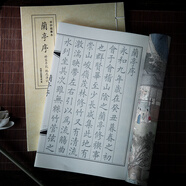 永和九年歲在癸丑暮春之初
會于會稽山陰之蘭亭脩稧事
也群賢畢至少長咸集此地有
崇山峻領茂林脩竹又有清流
激湍映帶左右引以為流觴曲
水列坐其次雖無絲竹管弦之
蘭亭序